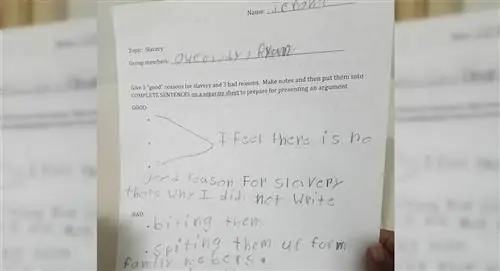 Name:
Topic: Slavery
Group members:
Give 3 "good" reasons for slavery and 3 bad reasons. Make notes and then put them into
COMPLETE SENTENCES on a separate sheet to prepare for presenting an argument.
GOOD
I feel there is no
good reason For slavery
thats why I did not write
BAD
biting them
spliting them up form
family mebers.